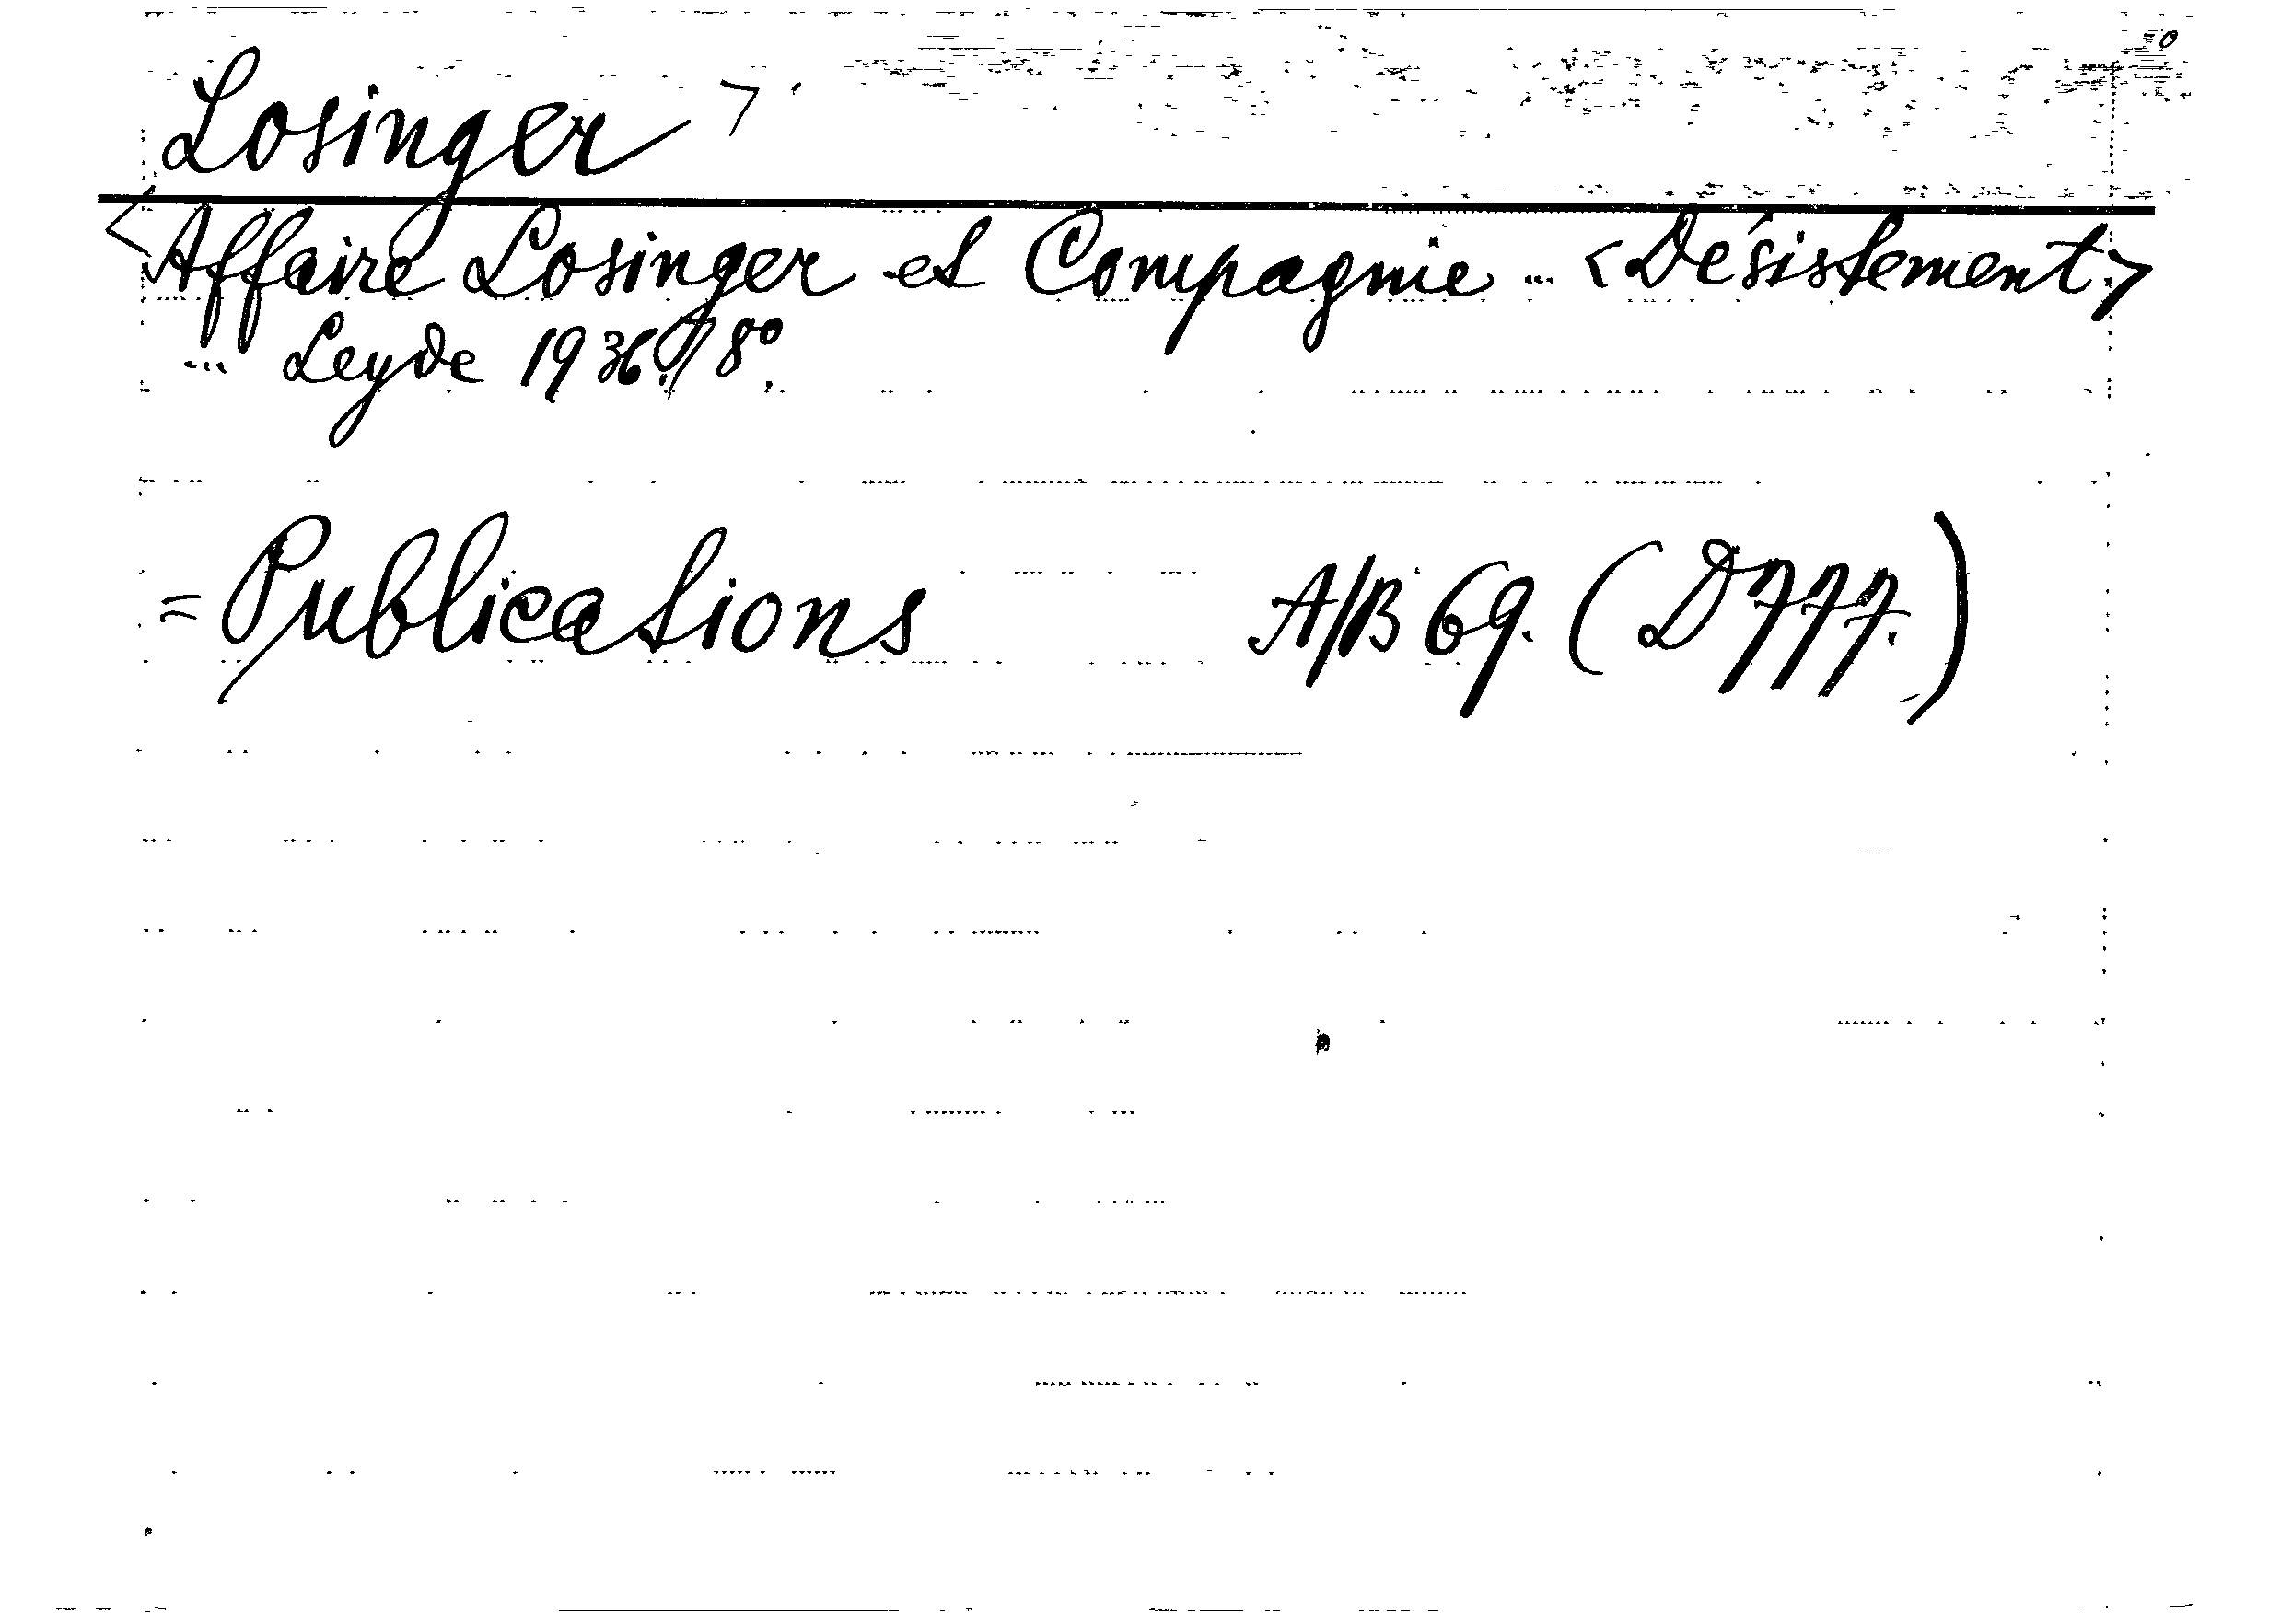 Losinger >
<Affaire Losinger et Compagnie ... <Désistement.>
... Leyde 1936. 8°.
= Publications A/B 69. (D777.)